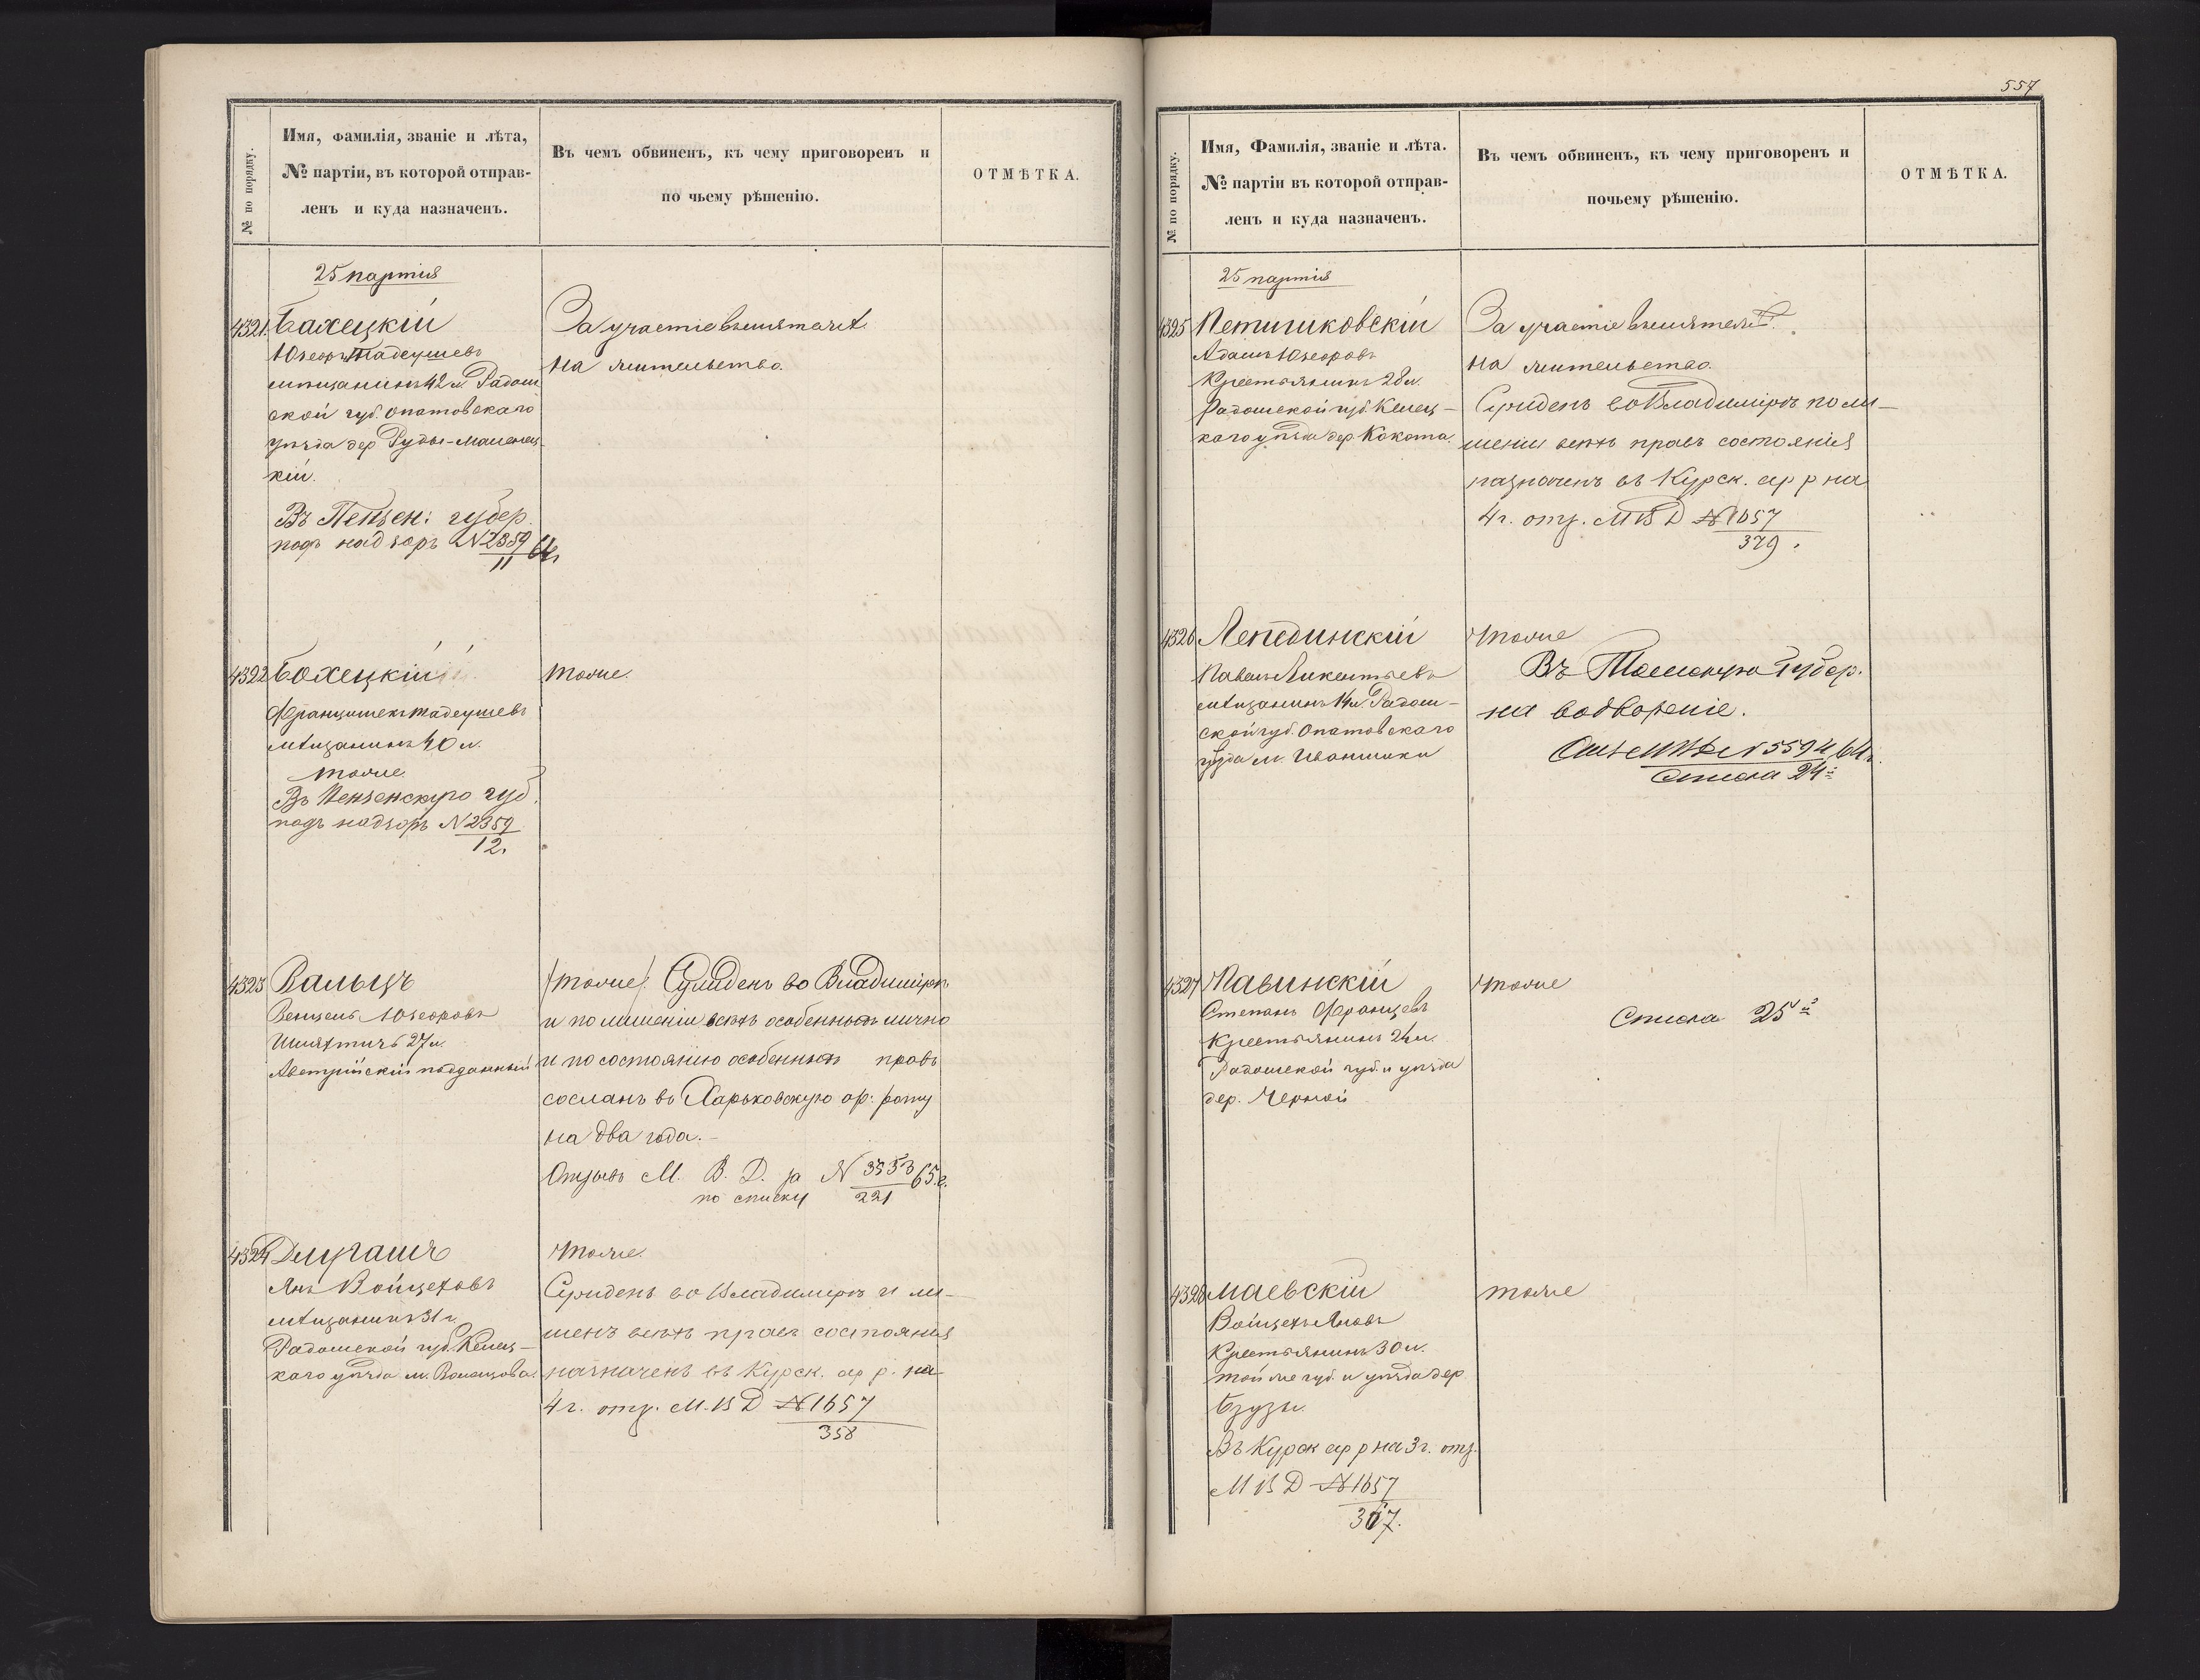 557
№ по порядку.
Имя, фамилія, званіе и лѣта,
№ партіи, въ которой отправ-
ленъ и куда назначенъ.
Въ чемъ обвиненъ, къ чему приговоренъ и
по чьему рѣшенію.
ОТМѢТКА.
25 партія
4321. Бахецкій
Юзефъ Тадеушевъ
мѣщанинъ 42 л. Радом
ской губ. Опатовскаго
уѣзда дер Руды-Маленец
кій.
Въ Пензен: губер.
подъ надзоръ N 2359 64
11
За участіе въ мятежѣ
на жительство.
4322 Бохецкій
Францишекъ Тадеушевъ
мѣщанинъ 40 л.
тоже.
Въ Пензенскую губ.
подъ надзоръ N 2359
12.
тоже.
4323 Вальцъ
Венцель Юзефовъ
Шляхтичъ 27 л.
Австрійскій подданный
тоже. Сужденъ во Владимірѣ
и по лишеніи всѣхъ особенныхъ лично
и по состоянію особенныхъ правъ
сосланъ въ Харьковскую ар: роту
на два года.
Отзывъ М. В. Д. за N 3353 65 г.
по списку 221
4324 Длугашъ
Янъ Войцеховъ
мѣщанинъ 31 г.
Радомской губ. Келец-
каго уѣзда м.
тоже.
Сужденъ во Владимирѣ и ли-
шенъ всѣхъ правъ состоянія
назначенъ въ Курск. ар р. на
4 г. отз. М. В Д № 1657
358
№ по порядку.
Имя, Фамилія, званіе и лѣта.
№ партіи въ которой отправ-
ленъ и куда назначенъ.
Въ чемъ обвиненъ, къ чему приговоренъ и
почьему рѣшенію.
ОТМѢТКА.
25 партія
4325 Петишковскій
Адамъ Юзефовъ
Крестьянинъ 28 л.
Радомской губ. Келец-
каго уѣзда дер Кокота.
За участіе въ мятежѣ.
на жительство.
Сужденъ во Владимірѣ по ли-
шеніи всѣхъ правъ состоянія
назначенъ въ Курск. ар р на
4 г. отз. М В Д № 1657
379.
4326 Лепединскій
Павелъ Викентьевъ
мѣщанинъ л. Радом-
ской губ. Опатовскаго
уѣзда м. Иваниски
тоже
Въ Томскую Губер.
на водвореніе.
N 5594 64 г.
Списка 24
4327 Павинскій
Степанъ Францевъ
Крестьянинъ 24 л.
Радомской губ. и уѣзда
дер. Черной
тоже
Списка 25
4328 Маевскій
Войцехъ Яновъ
Крестьянинъ 30 л.
той же губ. и уѣзда дер
Бзузы.
Въ Курск ар р на 3 г. отз.
М В Д № 1657
367.
тоже